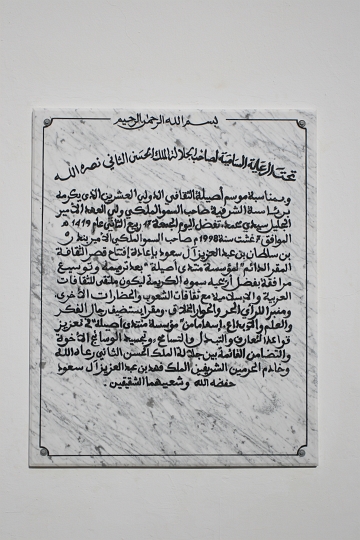 بسم الله الرحمن الرحيم
تحت الرعاية السامية لصاحب الجلالة الملك الحسن الثاني نصره الله
وبمناسبة موسم أصيلة الثقافي الدولي العشرين الذي يكرمه
برئاسته الشرفية صاحب السمو الملكي ولي العهد الأمير
الجليل سيدي محمد، تفضل اليوم الجمعة 17 ربيع الثاني عام 1419 هـ
الموافق 7 غشت سنة 1998 م صاحب السمو الملكي الأمير بندر
بن سلطان بن عبد العزيز آل سعود بإعادة افتتاح قصر الثقافة
المقر الدائم لمؤسسة منتدى أصيلة " بعد ترميمه وتوسيع
مرافقه بفضل أريحية سموه الكريمة ليكون ملتقى للثقافات
العربية والإسلامية مع ثقافات الشعوب والحضارات الأخرى،
ومنبرا للرأي الحر والحوار الخلاق، ومقرا يستضيف رجال الفكر
والعلم والإبداع، إسهاما من "مؤسسة منتدى أصيلة" في تعزيز
قواعد التعارف والتبادل والتسامح، وتجسيد الوشائج الأخوة
والتضامن القائمة بين جلالة الملك الحسن الثاني رعاه الله
وخادم الحرمين الشريفين الملك فهد بن عبد العزيز آل سعود
حفظه الله وشعبيهما الشقيقين.